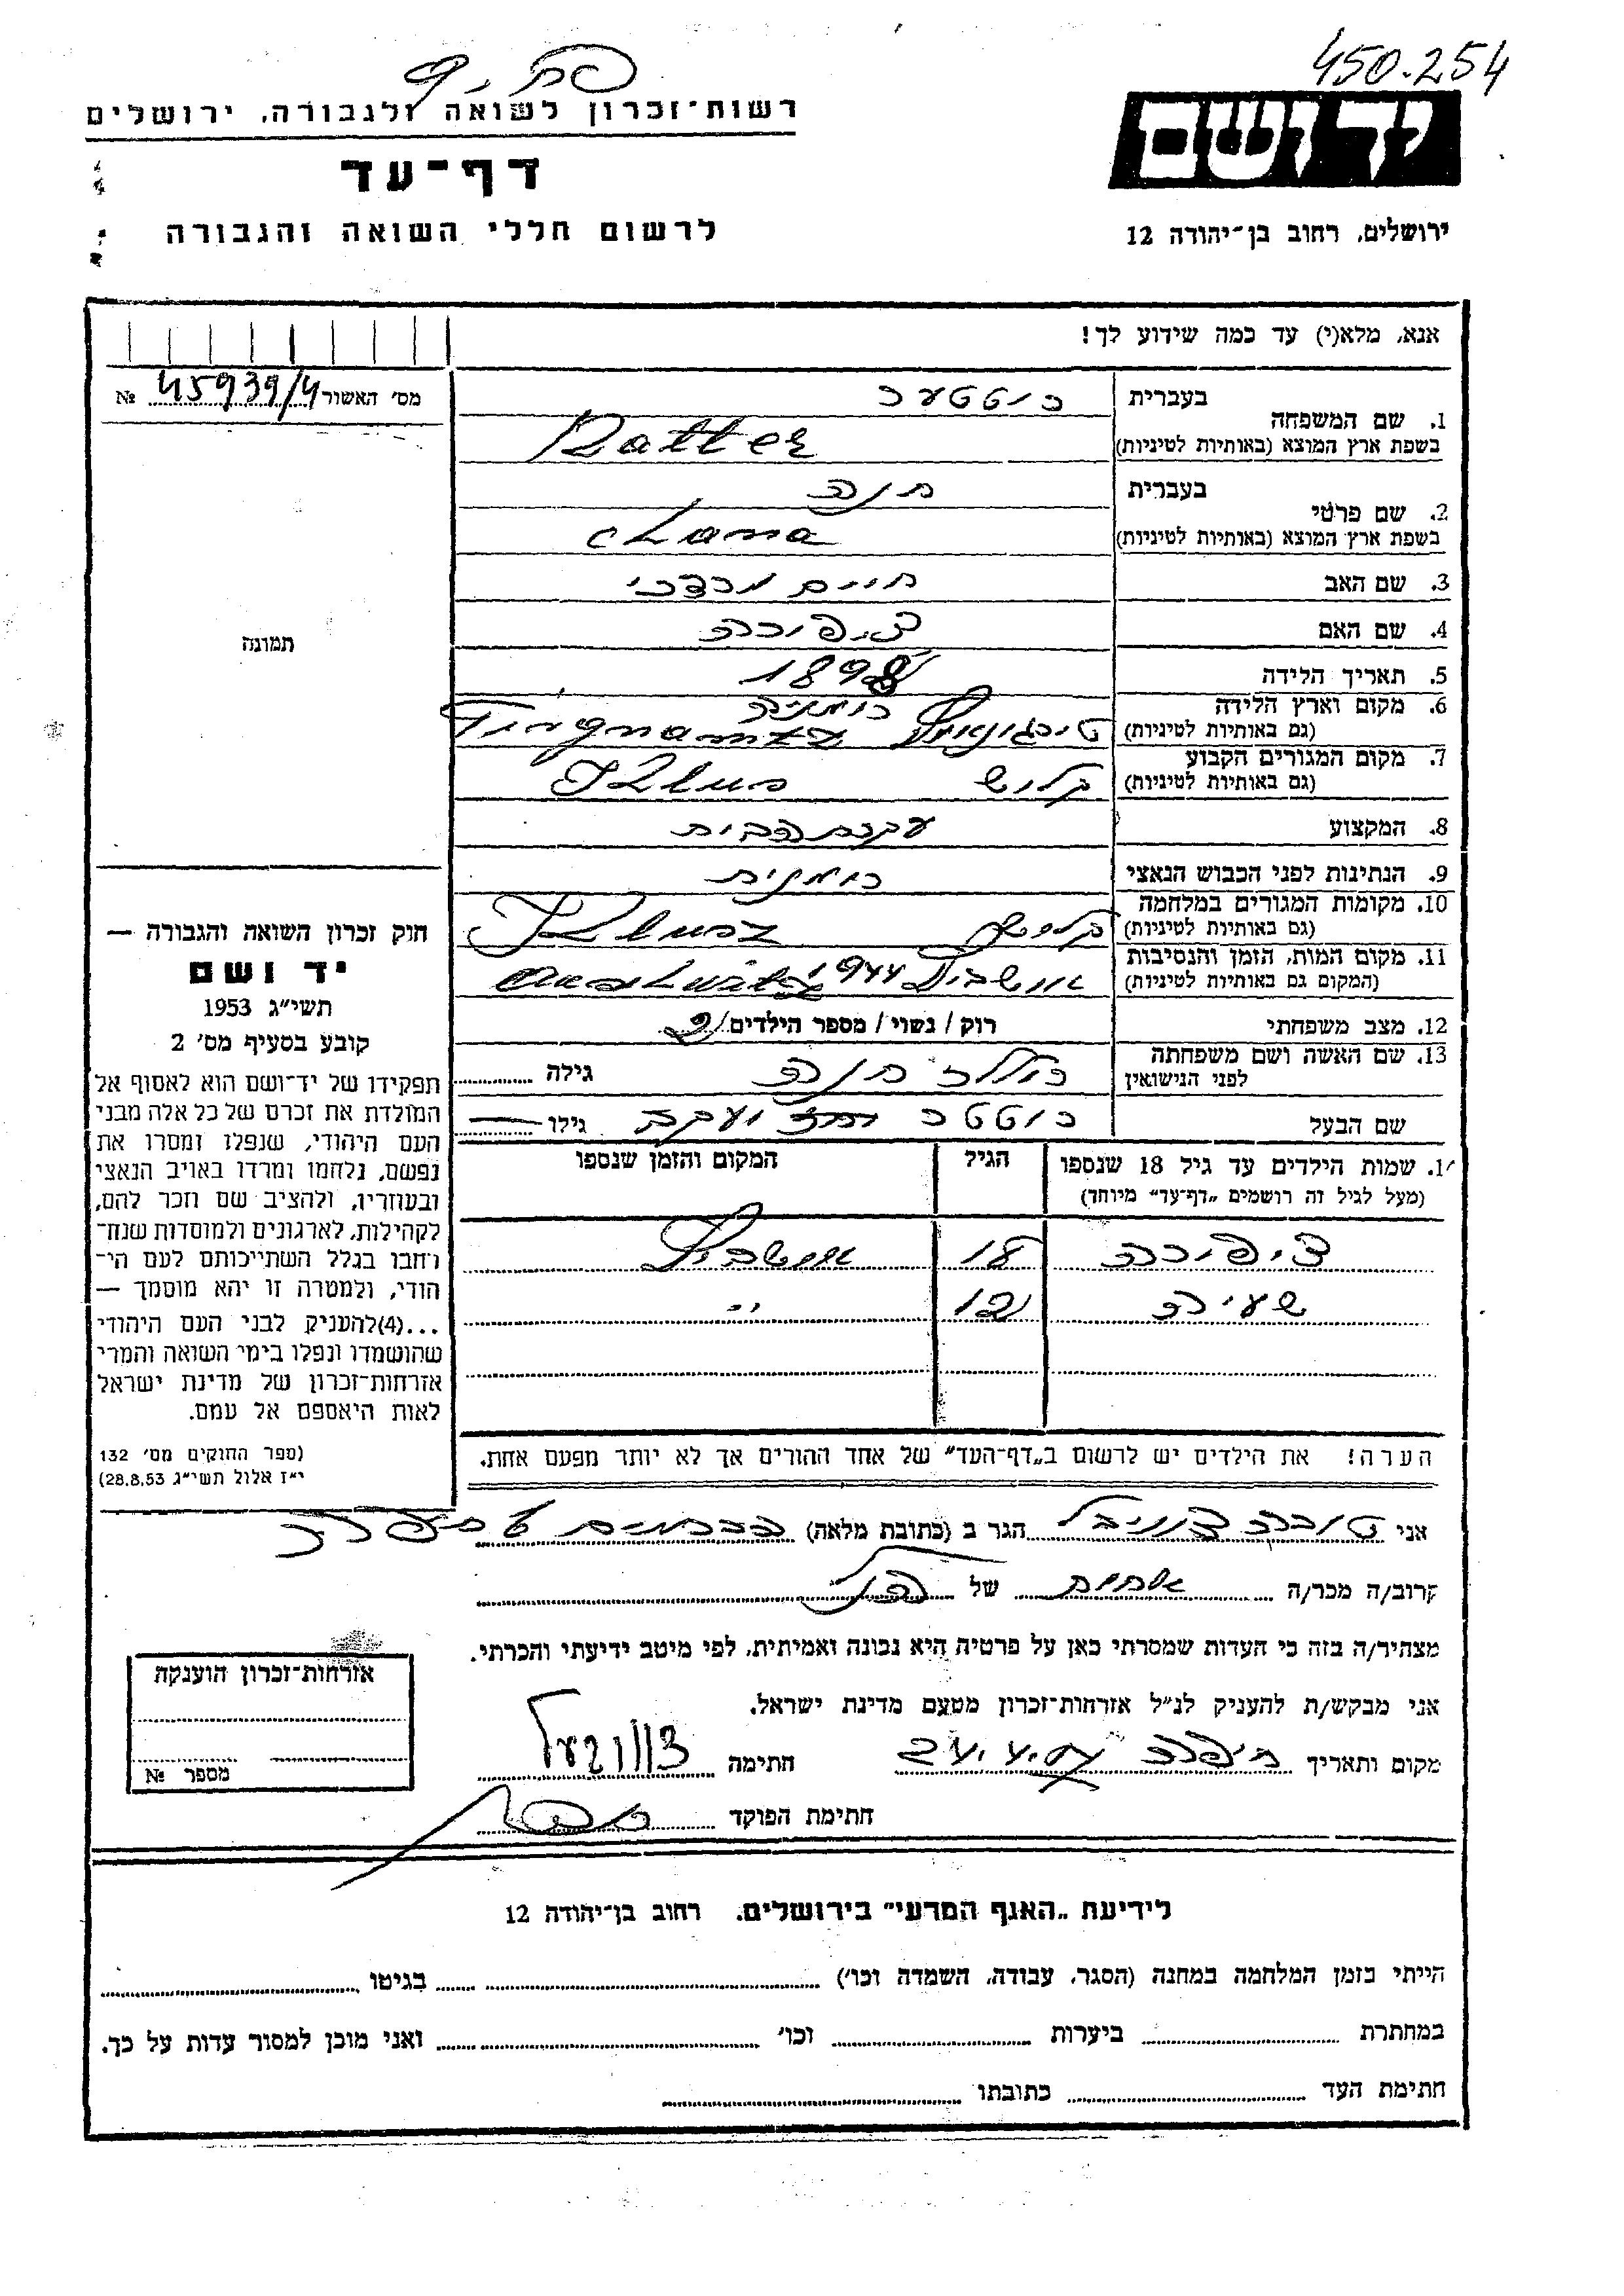 450.254
רשות־זכרון לשואה ולגבורה, ירושלים
יד ושם
דף־עד
לרשום חללי השואה והגבורה
ירושלים, רחוב בן־יהודה 12
אנא, מלא(י) עד כמה שידוע לך!
מס׳ האשור 45939/4 №
תמונה
בעברית
1. שם המשפחה
בשפת ארץ המוצא (באותיות לטיניות) Ratter
בעברית חנה
2. שם פרטי
בשפת ארץ המוצא (באותיות לטיניות) chana
3. שם האב חיים מרדכי
4. שם האם ציפורה
5. תאריך הלידה 1898
6. מקום וארץ הלידה רומניה
(גם באותיות לטיניות)
7. מקום המגורים הקבוע
(גם באותיות לטיניות) קלוש
8. המקצוע עקרת הבית
9. הנתינות לפני הכבוש הנאצי רומנית
10. מקומות המגורים במלחמה
(גם באותיות לטיניות) קלוש
11. מקום המות, הזמן והנסיבות
(המקום גם באותיות לטיניות) אושביץ 1944
12. מצב משפחתי רוק / נשוי / מספר הילדים 2
13. שם האשה ושם משפחתה
לפני הנישואין חנה גילה
שם הבעל יעקב גילו —
1. שמות הילדים עד גיל 18 שנספו הגיל המקום והזמן שנספו
(מעל לגיל זה רושמים „דף־עד״ מיוחד)
ציפורה אושביץ
12 ״
הערה! את הילדים יש לרשום ב„דף־העד״ של אחד ההורים אך לא יותר מפעם אחת.
חוק זכרון השואה והגבורה —
יד ושם
תשי״ג 1953
קובע בסעיף מס׳ 2
תפקידו של יד־ושם הוא לאסוף אל
המולדת את זכרם של כל אלה מבני
העם היהודי, שנפלו ומסרו את
נפשם, נלחמו ומרדו באויב הנאצי
ובעוזריו, ולהציב שם וזכר להם,
לקהילות, לארגונים ולמוסדות שנח־
רחבו בגלל השתייכותם לעם הי־
הודי, ולמטרה זו יהא מוסמך —
...(4)להעניק לבני העם היהודי
שהושמדו ונפלו בימי השואה והמרי
אזרחות־זכרון של מדינת ישראל
לאות היאספם אל עמם.
(ספר החוקים מס׳ 132
י״ז אלול תשי״ג 28.8.53)
אני טובה הגר ב (כתובת מלאה)
קרוב/ה מכר/ה אחות של הנ״ל
מצהיר/ה בזה כי העדות שמסרתי כאן על פרטיה היא נכונה ואמיתית, לפי מיטב ידיעתי והכרתי.
אני מבקש/ת להעניק לנ״ל אזרחות־זכרון מטעם מדינת ישראל.
מקום ותאריך חיפה חתימה
חתימת הפוקד
אזרחות־זכרון הוענקה
מספר №
לידיעת „האגף המדעי״ בירושלים, רחוב בן־יהודה 12
הייתי בזמן המלחמה במחנה (הסגר, עבודה, השמדה וכו׳) בגיטו
במחתרת ביערות וכו׳ ואני מוכן למסור עדות על כך.
חתימת העד כתובתו